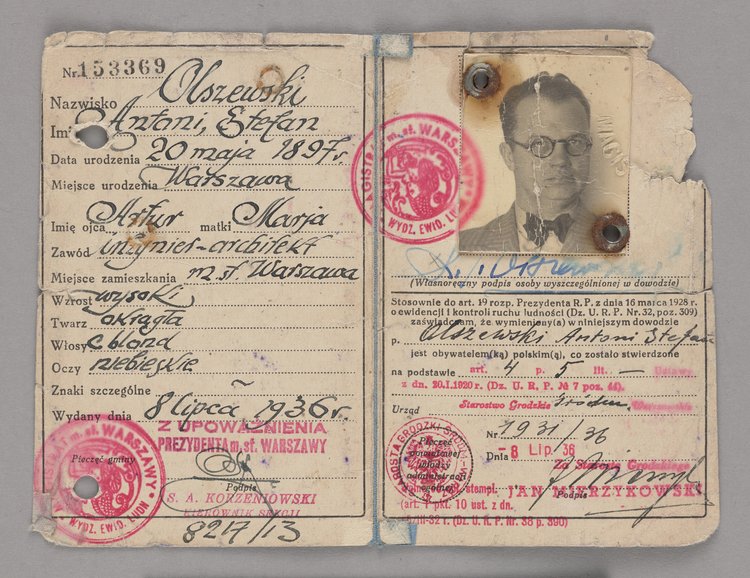 Nr. 153369
Nazwisko Olszewski
Im Antoni, Stefan
Data urodzenia 20 maja 1897 r
Miejsce urodzenia Warszawa
Imię ojca Artur matki Marja
Zawód inżynier-architekt
Miejsce zamieszkania m. st. Warszawa
Wzrost wysoki
Twarz okrągła
Włosy blond
Oczy niebieskie
Znaki szczególne –
Wydany dnia 8 lipca 1936 r.
Z UPOWAŻNIENIA
PREZYDENTA m. st. WARSZAWY
Pieczęć gminy
Podpis
S. A. KORZENIOWSKI
KIEROWNIK SEKCJI
8217/13
m. st. WARSZAWY
WYDZ. EWID. LUDN
MAGISTRAT m. st. WARSZAWY
WYDZ. EWID. LUDN
(Własnoręczny podpis osoby wyszczególnionej w dowodzie)
Stosownie do art. 19 rozp. Prezydenta R. P. z dnia 16 marca 1928 r.
o ewidencji i kontroli ruchu ludności (Dz. U. R. P. Nr. 32, poz. 309)
zaświadczam, że wymieniony(a) w niniejszym dowodzie
p. Olszewski Antoni Stefan
jest obywatelem(ką) polskim(ą), co zostało stwierdzone
na podstawie art. 4 p. 5 lit. — Ustawy
z dn. 20.I.1920 r. (Dz. U. R. P. № 7 poz. 44).
Starostwo Grodzkie
Urząd
Nr 1931/36
Dnia -8 Lip. 36
Za Starostę Grodzkiego
Pieczęć
powiatowej
władzy
administracji
ogólnej
stempl. JAN MIERZYKOWSKI
Podpis
(art. 1 pkt. 10 ust. z dn.
/III-32 r. (Dz. U. R. P. Nr 38 p. 390)